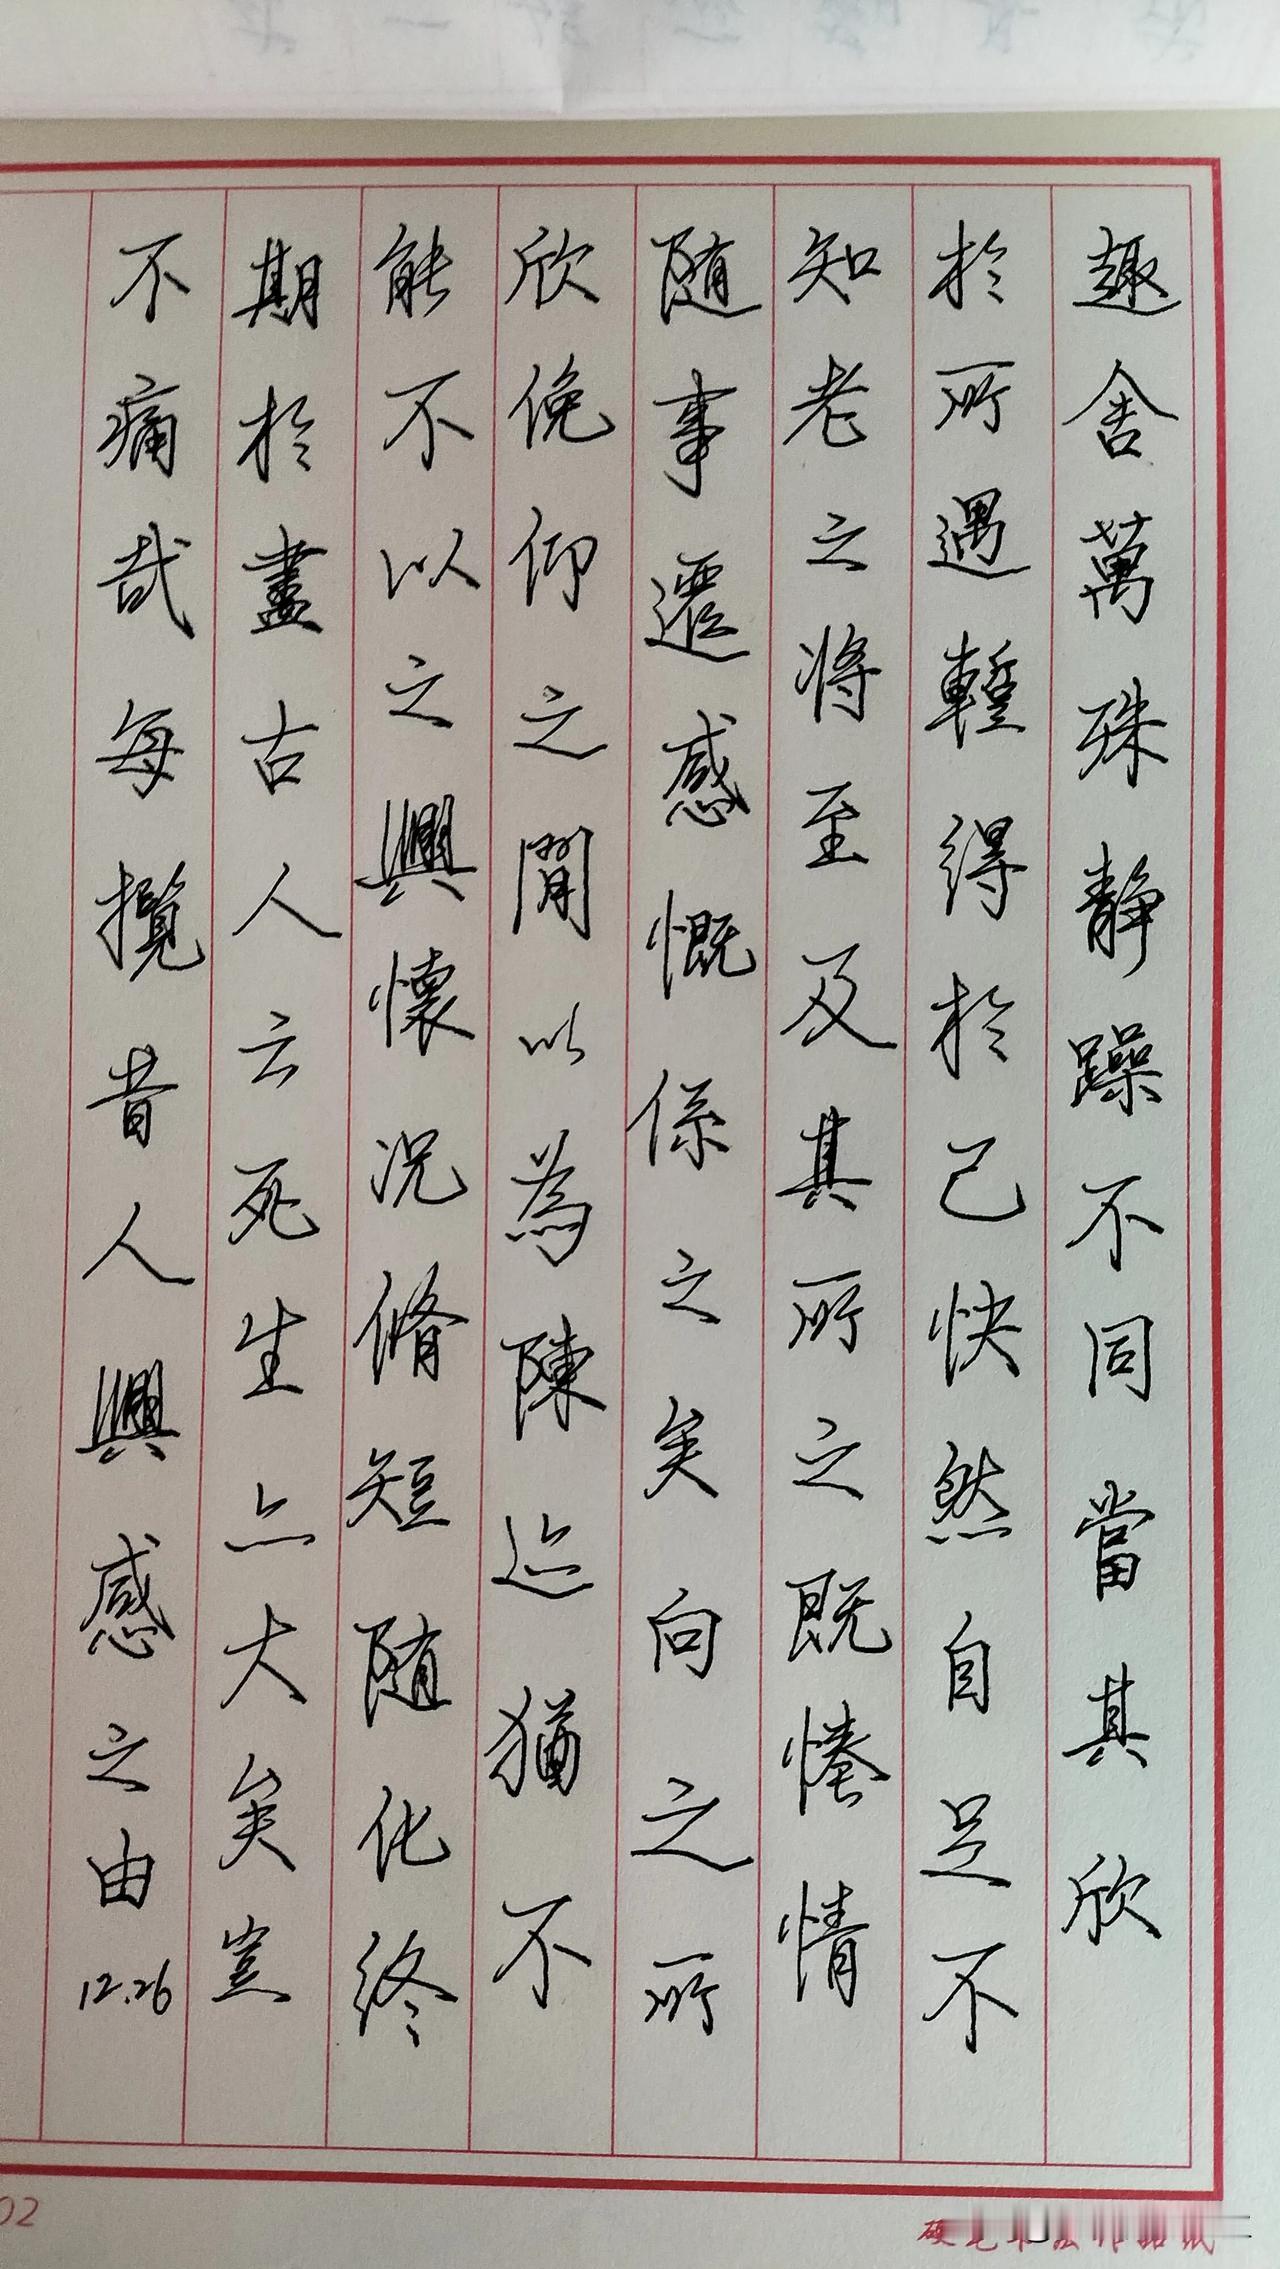 趣舍萬殊静躁不同當其欣
於所遇蹔得於己快然自足不
知老之将至及其所之既惓情
随事遷感慨係之矣向之所
欣俛仰之閒以為陳迹猶不
能不以之興懷况脩短随化終
期於盡古人云死生亠大矣豈
不痛哉每攬昔人興感之由
12.26
02